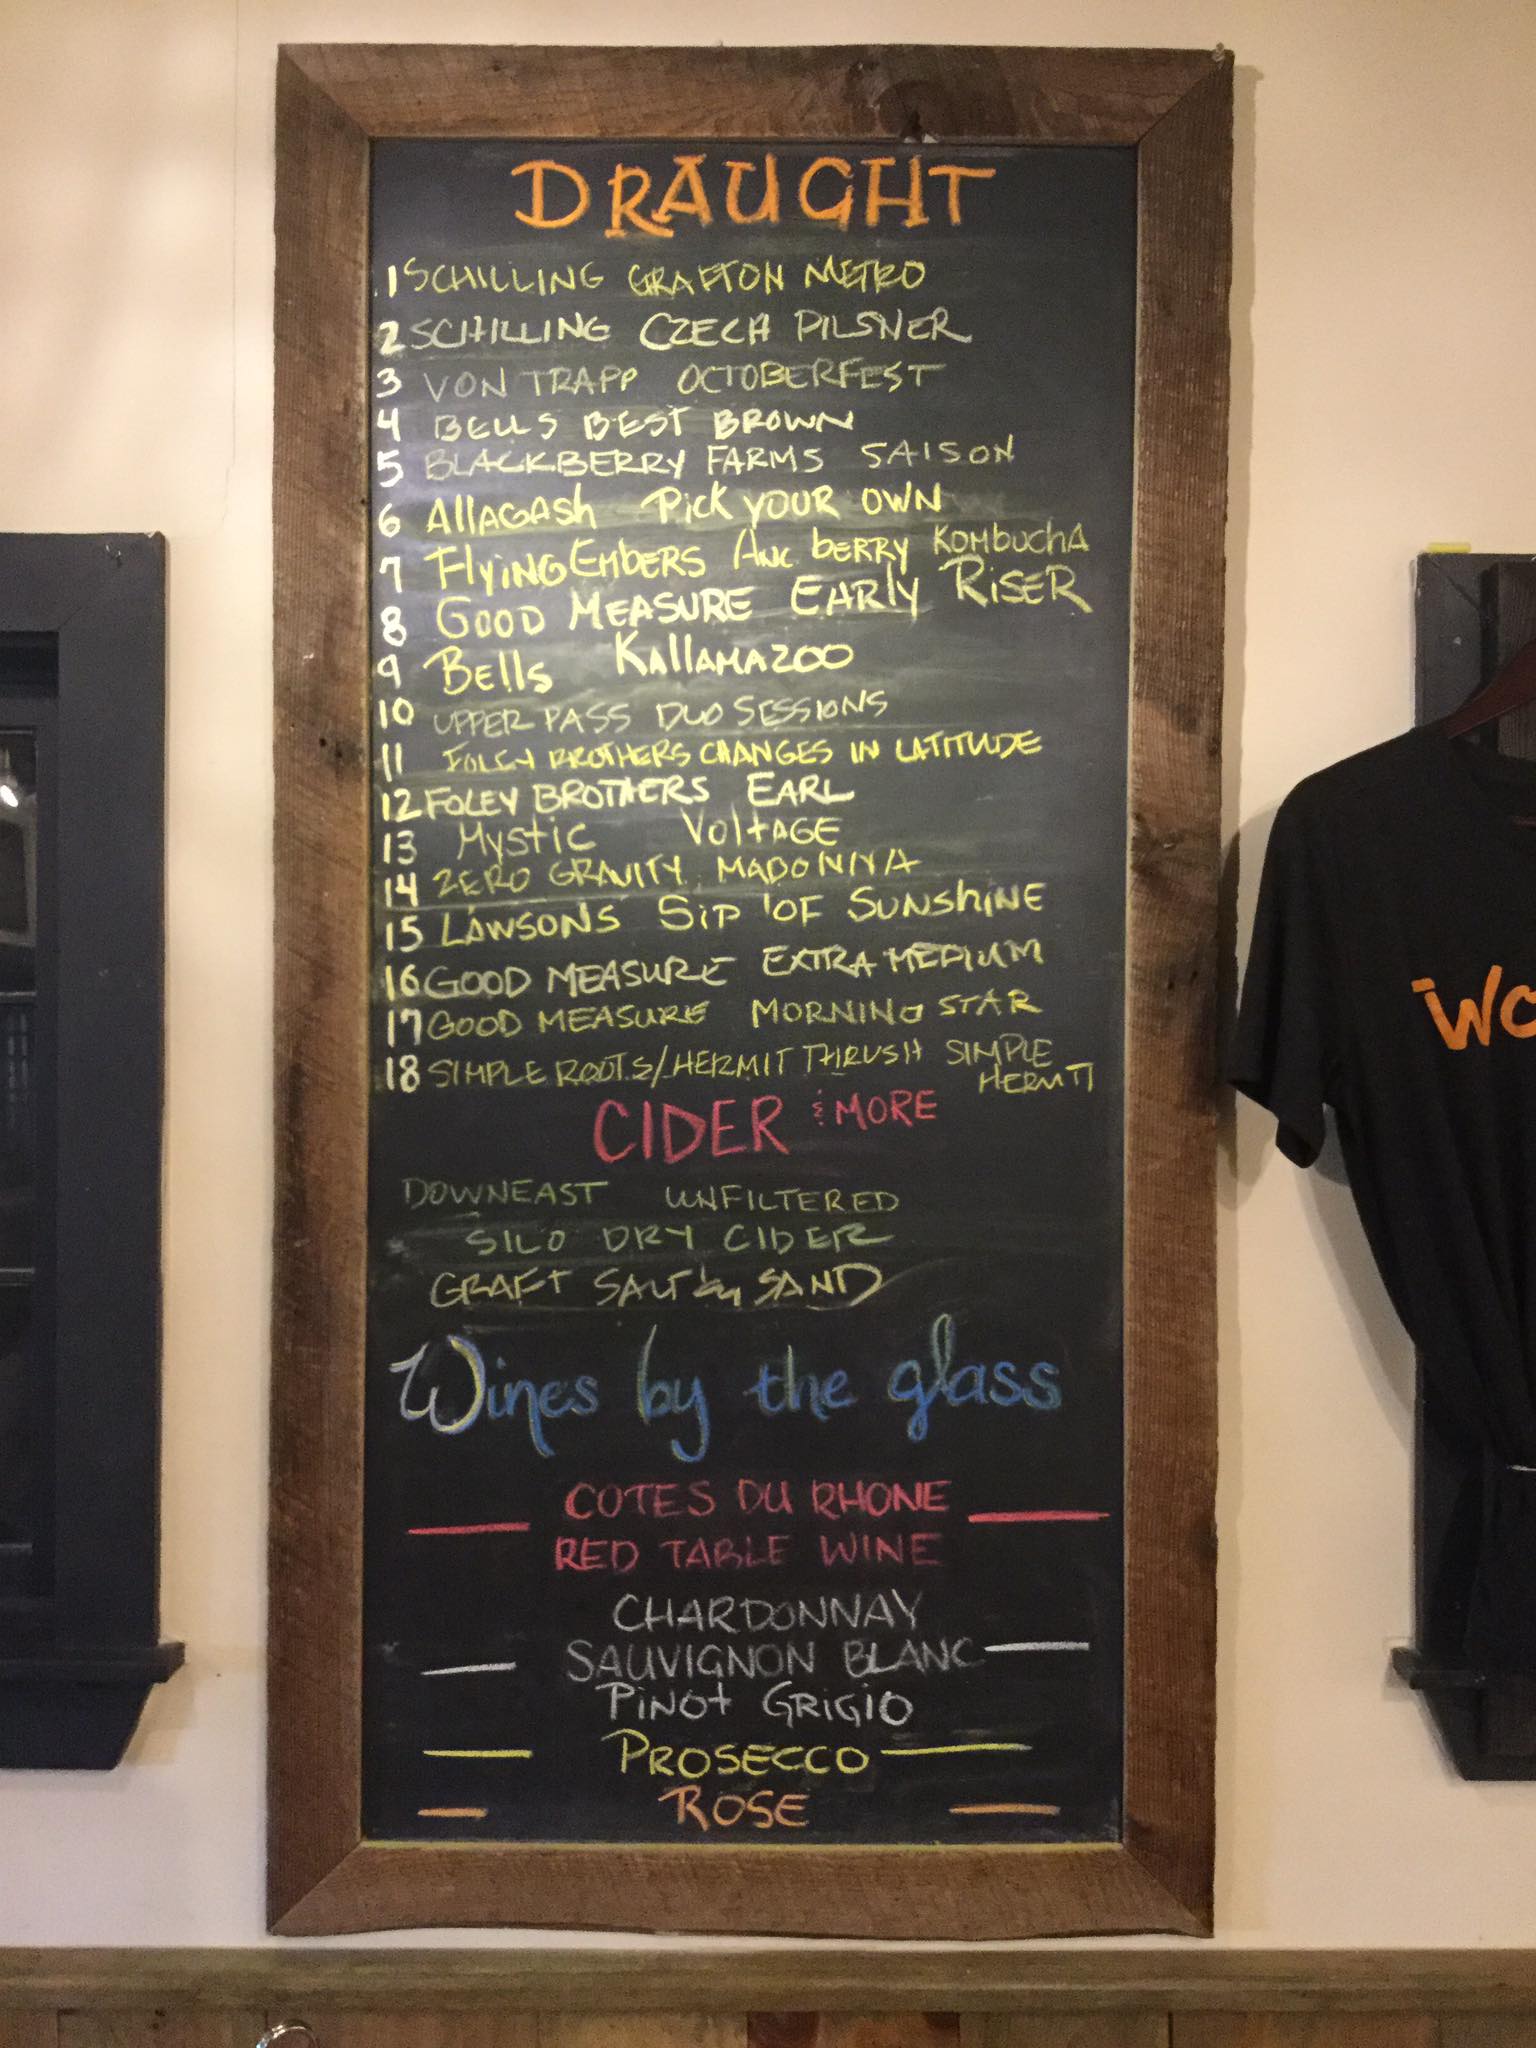 DRAUGHT
1 SCHILLING GRAFTON METRO
2 SCHILLING CZECH PILSNER
3 VON TRAPP OCTOBERFEST
4 BELLS BEST BROWN
5 BLACKBERRY FARMS SAISON
6 AllAGASh Pick YOUR OWN
7 FlyiNG EmbERS ANC bERRY KOMbUChA
8 GOOD MEASURE EARly RiSER
9 Bells KAllAMAZOO
10 UPPER PASS DUO SESSIONS
11 FOLEY BROTHERS CHANGES IN LATITUDE
12 FOLEY BROTHERS EARL
13 Mystic VoltAGE
14 ZERO GRAVITY MADONNA
15 LAWSONS SiP 'OF SUNShiNE
16 GOOD MEASURE EXTRA MEDIUM
17 GOOD MEASURE MORNING STAR
18 SIMPLE ROOTS/HERMIT THRUSH SIMPLE
HERMTI
CIDER & MORE
DOWNEAST UNFILTERED
SILO DRY CIDER
GRAFT SALT SAND
Wines by the glass
COTES DU RHONE
RED TABLE WINE
CHARDONNAY
SAUVIGNON BLANC
PiNOt GRiGiO
PROSECCO
ROSE